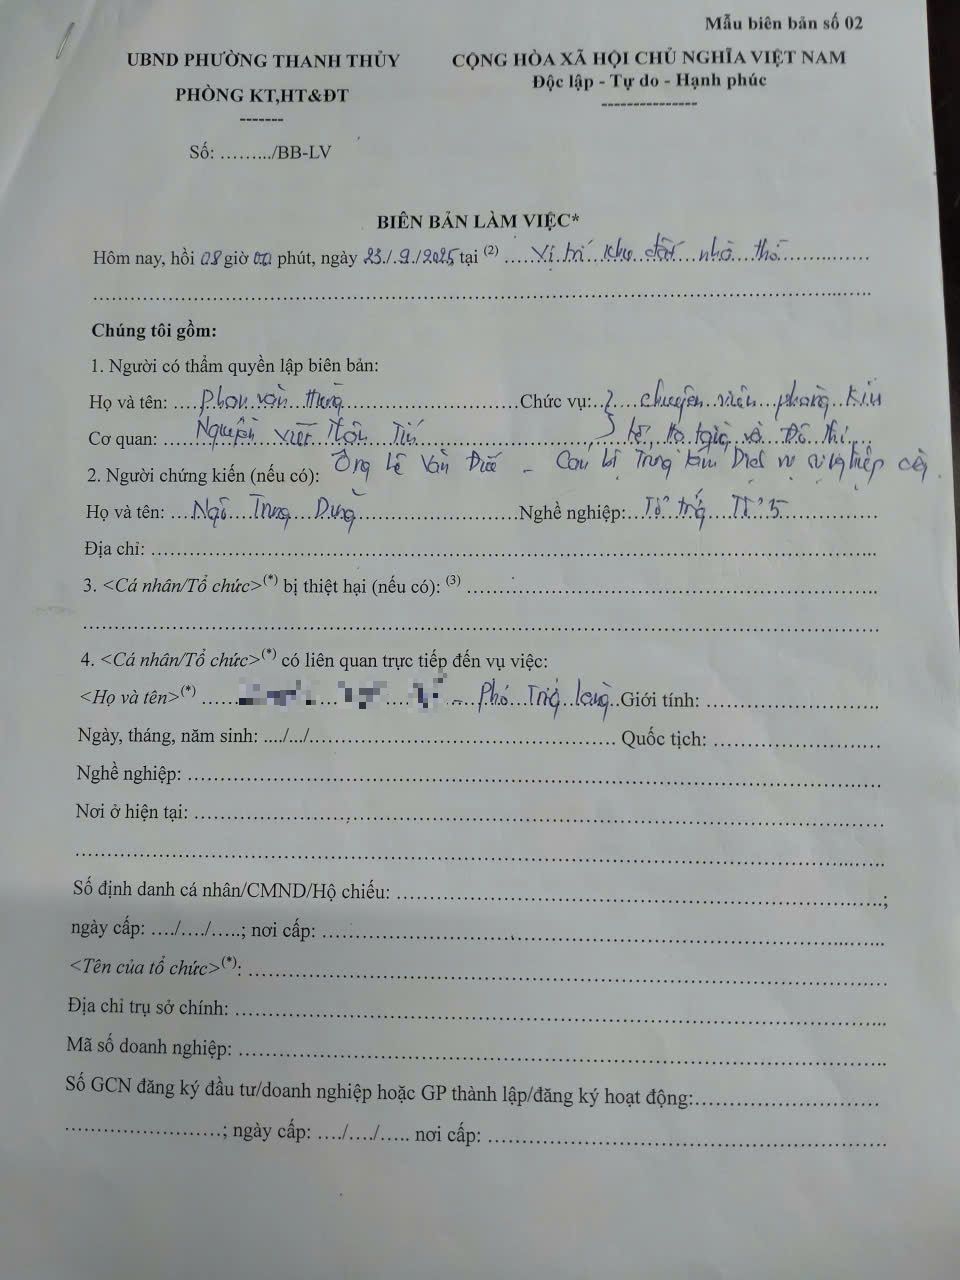 Mẫu biên bản số 02
UBND PHƯỜNG THANH THỦY
CỘNG HÒA XÃ HỘI CHỦ NGHĨA VIỆT NAM
PHÒNG KT,HT&ĐT
Độc lập - Tự do - Hạnh phúc
-------
---------------
Số: ………/BB-LV
BIÊN BẢN LÀM VIỆC*
Hôm nay, hồi 08 giờ 00 phút, ngày 23/9/2025 tại (2) Vị trí khu đất nhà thờ
Chúng tôi gồm:
1. Người có thẩm quyền lập biên bản:
Họ và tên: Phan Văn Hùng Chức vụ: chuyên viên phòng Kinh
Cơ quan: Nguyễn Viết Tiến tế, Hạ tầng và Đô thị
2. Người chứng kiến (nếu có): Ông Lê Văn - Cán bộ Trung tâm Dịch vụ sự nghiệp công
Họ và tên: Ngô Trung Dũng Nghề nghiệp: Tổ trưởng Tổ 5
Địa chỉ: ………
3. <Cá nhân/Tổ chức>(*) bị thiệt hại (nếu có): (3) ………
4. <Cá nhân/Tổ chức>(*) có liên quan trực tiếp đến vụ việc:
<Họ và tên>(*) - Phó Trưởng làng Giới tính: ………
Ngày, tháng, năm sinh: ..../.../……… Quốc tịch: ………
Nghề nghiệp: ………
Nơi ở hiện tại: ………
Số định danh cá nhân/CMND/Hộ chiếu: ………;
ngày cấp: …./…./…..; nơi cấp: ………
<Tên của tổ chức>(*): ………
Địa chỉ trụ sở chính: ………
Mã số doanh nghiệp: ………
Số GCN đăng ký đầu tư/doanh nghiệp hoặc GP thành lập/đăng ký hoạt động:………
………; ngày cấp: …./…./….. nơi cấp: ………